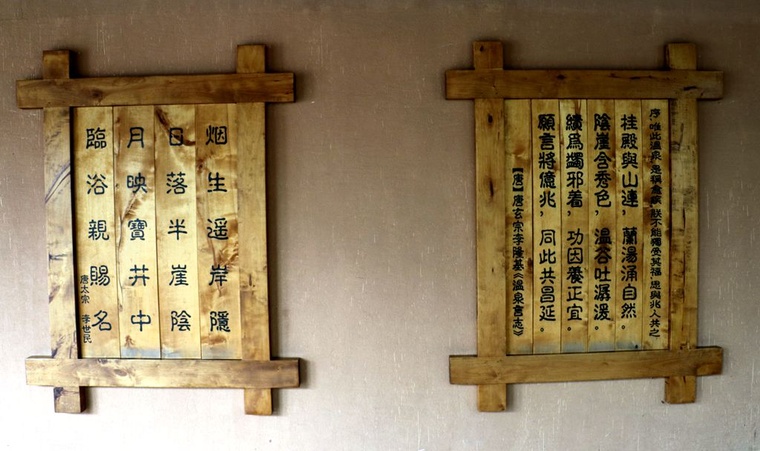 烟生遥岸隱
日落半崖陰
月映寶井中
臨浴親賜名
唐太宗 李世民
序 唯此溫泉,是稱愈疾,朕不能獨受其福,思與兆人共之
桂殿與山連,蘭湯涌自然。
陰崖含秀色,溫谷吐潺湲。
績爲蠲邪着,功因養正宜。
願言將億兆,同此共昌延。
【唐】唐玄宗李隆基《溫泉言志》